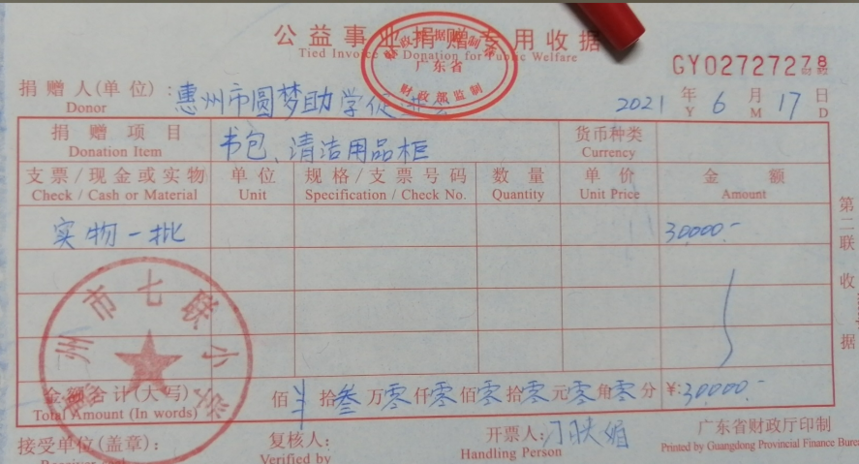 公益事业捐赠专用收据
Tied Invoice of Donation for Public Welfare
财政票据监制章
广东省
财政部监制
GY02727278
捐赠人(单位): 惠州市圆梦助学促进会
Donor
2021 年 6 月 17 日
Y M D
捐赠项目 书包、清洁用品柜 货币种类
Donation Item Currency
支票/现金或实物 单位 规格/支票号码 数量 单价 金额
Check / Cash or Material Unit Specification / Check No. Quantity Unit Price Amount
实物一批 30000.-
第二联 收据
州市七联小学
金额合计(大写) 佰 拾叁万零仟零佰零拾零元零角零分 ¥:30000.-
Total Amount (In words)
接受单位(盖章): 复核人: 开票人:
Verified by Handling Person
广东省财政厅印制
Printed by Guangdong Provincial Finance Bure